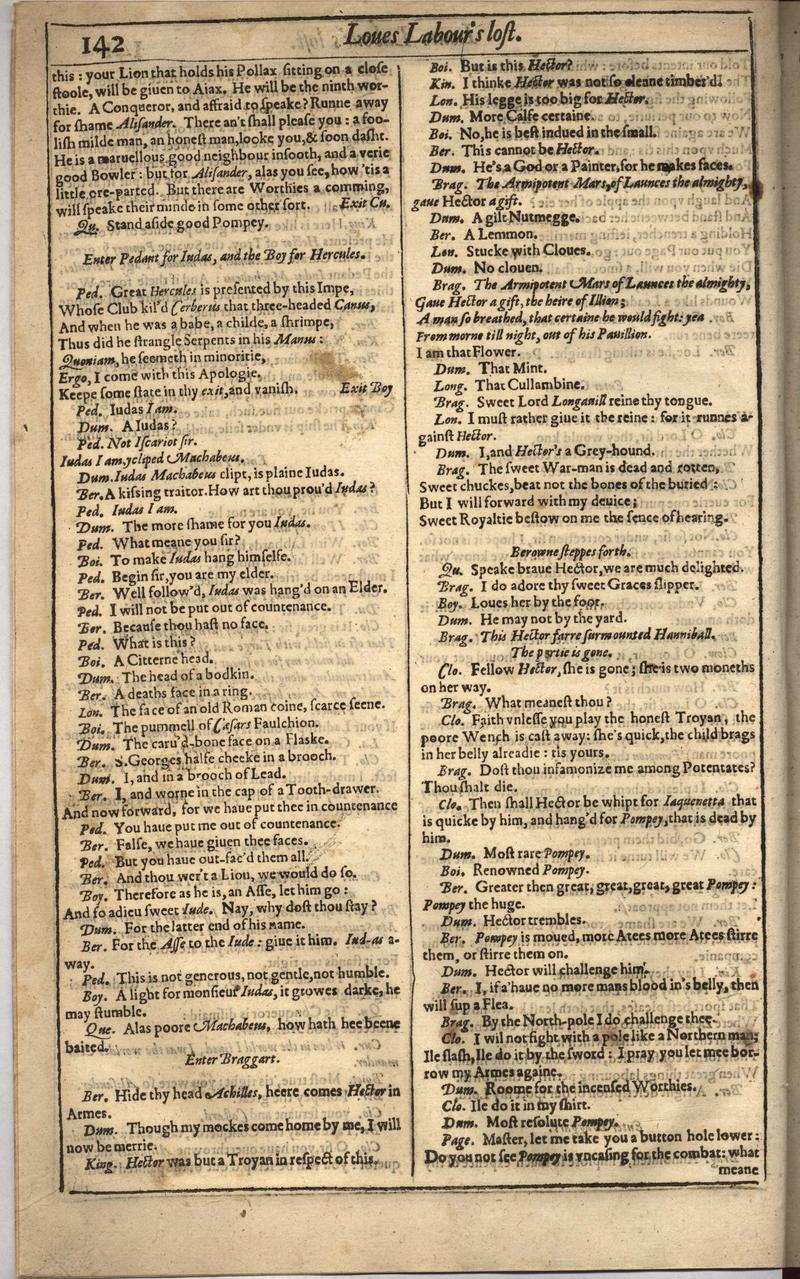 142
Loues Labour's lost.
this : your Lion that holds his Pollax sitting on a close
stoole, will be giuen to Aiax. He will be the ninth wor-
thie. A Conqueror, and affraid to speake? Runne away
for shame Alisander. There an't shall please you : a foo-
lish milde man, an honest man, looke you, & soon dasht.
He is a maruellous good neighbour insooth, and a verie
good Bowler : but for Alisander, alas you see, how 'tis a
little ore-parted. But there are Worthies a comming,
will speake their minde in some other sort. Exit Cu.
Qu. Stand aside good Pompey.
Enter Pedant for Iudas, and the Boy for Hercules.
Ped. Great Hercules is presented by this Impe,
Whose Club kil'd Cerberus that three-headed Canus,
And when he was a babe, a childe, a shrimpe,
Thus did he strangle Serpents in his Manus :
Quoniam, he seemeth in minoritie,
Ergo, I come with this Apologie.
Keepe some state in thy exit, and vanish. Exit Boy
Ped. Iudas I am.
Dum. A Iudas?
Ped. Not Iscariot sir.
Iudas I am, ycliped Machabeus.
Dum. Iudas Machabeus clipt, is plaine Iudas.
Ber. A kissing traitor. How art thou prou'd Iudas?
Ped. Iudas I am.
Dum. The more shame for you Iudas.
Ped. What meane you sir?
Boi. To make Iudas hang himselfe.
Ped. Begin sir, you are my elder.
Ber. Well follow'd, Iudas was hang'd on an Elder.
Ped. I will not be put out of countenance.
Ber. Because thou hast no face.
Ped. What is this?
Boi. A Citterne head.
Dum. The head of a bodkin.
Ber. A deaths face in a ring.
Lon. The face of an old Roman coine, scarce seene.
Boi. The pummell of Cæsars Faulchion.
Dum. The caru'd-bone face on a Flaske.
Ber. S. Georges halfe cheeke in a brooch.
Dum. I, and in a brooch of Lead.
Ber. I, and worne in the cap of a Tooth-drawer.
And now forward, for we haue put thee in countenance
Ped. You haue put me out of countenance.
Ber. False, we haue giuen thee faces.
Ped. But you haue out-fac'd them all.
Ber. And thou wer't a Lion, we would do so.
Boy. Therefore as he is, an Asse, let him go :
And so adieu sweet Iude. Nay, why dost thou stay?
Dum. For the latter end of his name.
Ber. For the Asse to the Iude : giue it him. Iud-as a-
way.
Ped. This is not generous, not gentle, not humble.
Boy. A light for monsieur Iudas, it growes darke, he
may stumble.
Que. Alas poore Machabeus, how hath hee beene
baited.
Enter Braggart.
Ber. Hide thy head Achilles, heere comes Hector in
Armes.
Dum. Though my mockes come home by me, I will
now be merrie.
King. Hector was but a Troyan in respect of this.
Boi. But is this Hector?
Kin. I thinke Hector was not so cleane timber'd.
Lon. His legge is too big for Hector.
Dum. More Calfe certaine.
Boi. No, he is best indued in the small.
Ber. This cannot be Hector.
Dum. He's a God or a Painter, for he makes faces.
Brag. The Armipotent Mars, of Launces the almighty,
gaue Hector a gift.
Dum. A gilt Nutmegge.
Ber. A Lemmon.
Lon. Stucke with Cloues.
Dum. No clouen.
Brag. The Armipotent Mars of Launces the almighty,
Gaue Hector a gift, the heire of Illion;
A man so breathed, that certaine he would fight: yea
From morne till night, out of his Pauillion.
I am that Flower.
Dum. That Mint.
Long. That Cullambine.
Brag. Sweet Lord Longauill reine thy tongue.
Lon. I must rather giue it the reine : for it runnes a-
gainst Hector.
Dum. I, and Hector's a Grey-hound.
Brag. The sweet War-man is dead and rotten,
Sweet chuckes, beat not the bones of the buried :
But I will forward with my deuice;
Sweet Royaltie bestow on me the sence of hearing.
Berowne steppes forth.
Qu. Speake braue Hector, we are much delighted.
Brag. I do adore thy sweet Graces slipper.
Boy. Loues her by the foot.
Dum. He may not by the yard.
Brag. This Hector farre surmounted Hanniball.
The partie is gone.
Clo. Fellow Hector, she is gone; she is two moneths
on her way.
Brag. What meanest thou?
Clo. Faith vnlesse you play the honest Troyan, the
poore Wench is cast away: she's quick, the child brags
in her belly alreadie : tis yours.
Brag. Dost thou infamonize me among Potentates?
Thou shalt die.
Clo. Then shall Hector be whipt for Iaquenetta that
is quicke by him, and hang'd for Pompey, that is dead by
him.
Dum. Most rare Pompey.
Boi. Renowned Pompey.
Ber. Greater then great, great, great, great Pompey :
Pompey the huge.
Dum. Hector trembles.
Ber. Pompey is moued, more Atees more Atees stirre
them, or stirre them on.
Dum. Hector will challenge him.
Ber. I, if a'haue no more mans blood in's belly, then
will sup a Flea.
Brag. By the North-pole I do challenge thee.
Clo. I wil not fight with a pole like a Northern man;
Ile slash, Ile do it by the sword : I pray you let mee bor-
row my Armes againe.
Dum. Roome for the incensed Worthies.
Clo. Ile do it in my shirt.
Dum. Most resolute Pompey.
Page. Master, let me take you a button hole lower :
Do you not see Pompey is vncasing for the combat: what
meane